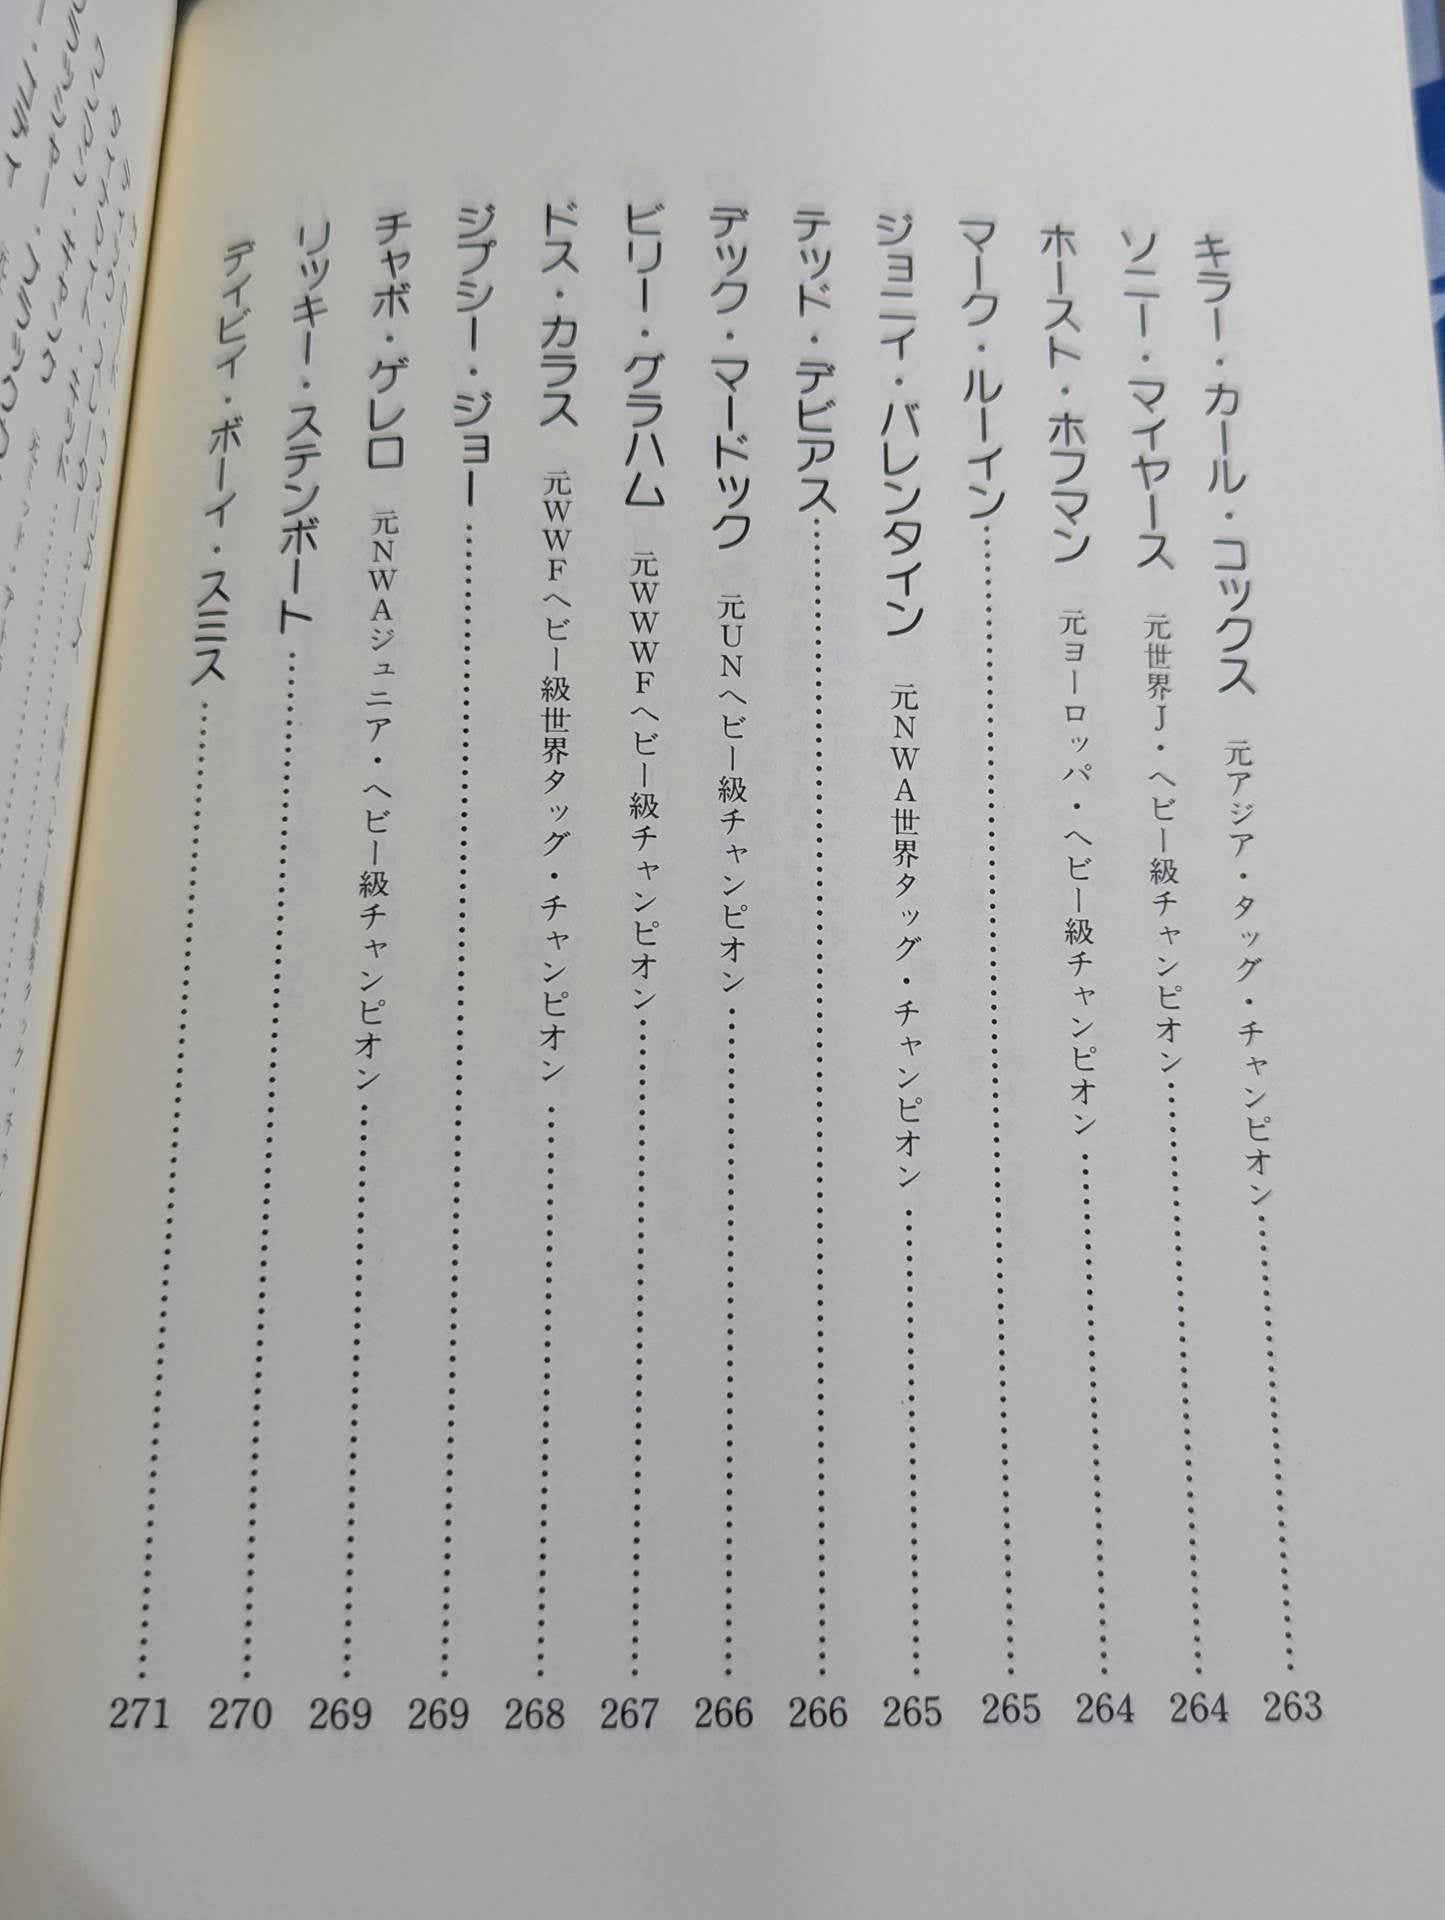 キラー・カール・コックス 元アジア・タッグ・チャンピオン……263
ソニー・マイヤース 元世界J・ヘビー級チャンピオン……264
ホースト・ホフマン 元ヨーロッパ・ヘビー級チャンピオン……264
マーク・ルーイン……265
ジョニイ・バレンタイン 元NWA世界タッグ・チャンピオン……265
テッド・デビアス……266
デック・マードック 元UNヘビー級チャンピオン……266
ビリー・グラハム 元WWWFヘビー級チャンピオン……267
ドス・カラス 元WWFヘビー級世界タッグ・チャンピオン……268
ジプシー・ジョー……269
チャボ・ゲレロ 元NWAジュニア・ヘビー級チャンピオン……269
リッキー・ステンボート……270
デイビイ・ボーイ・スミス……271